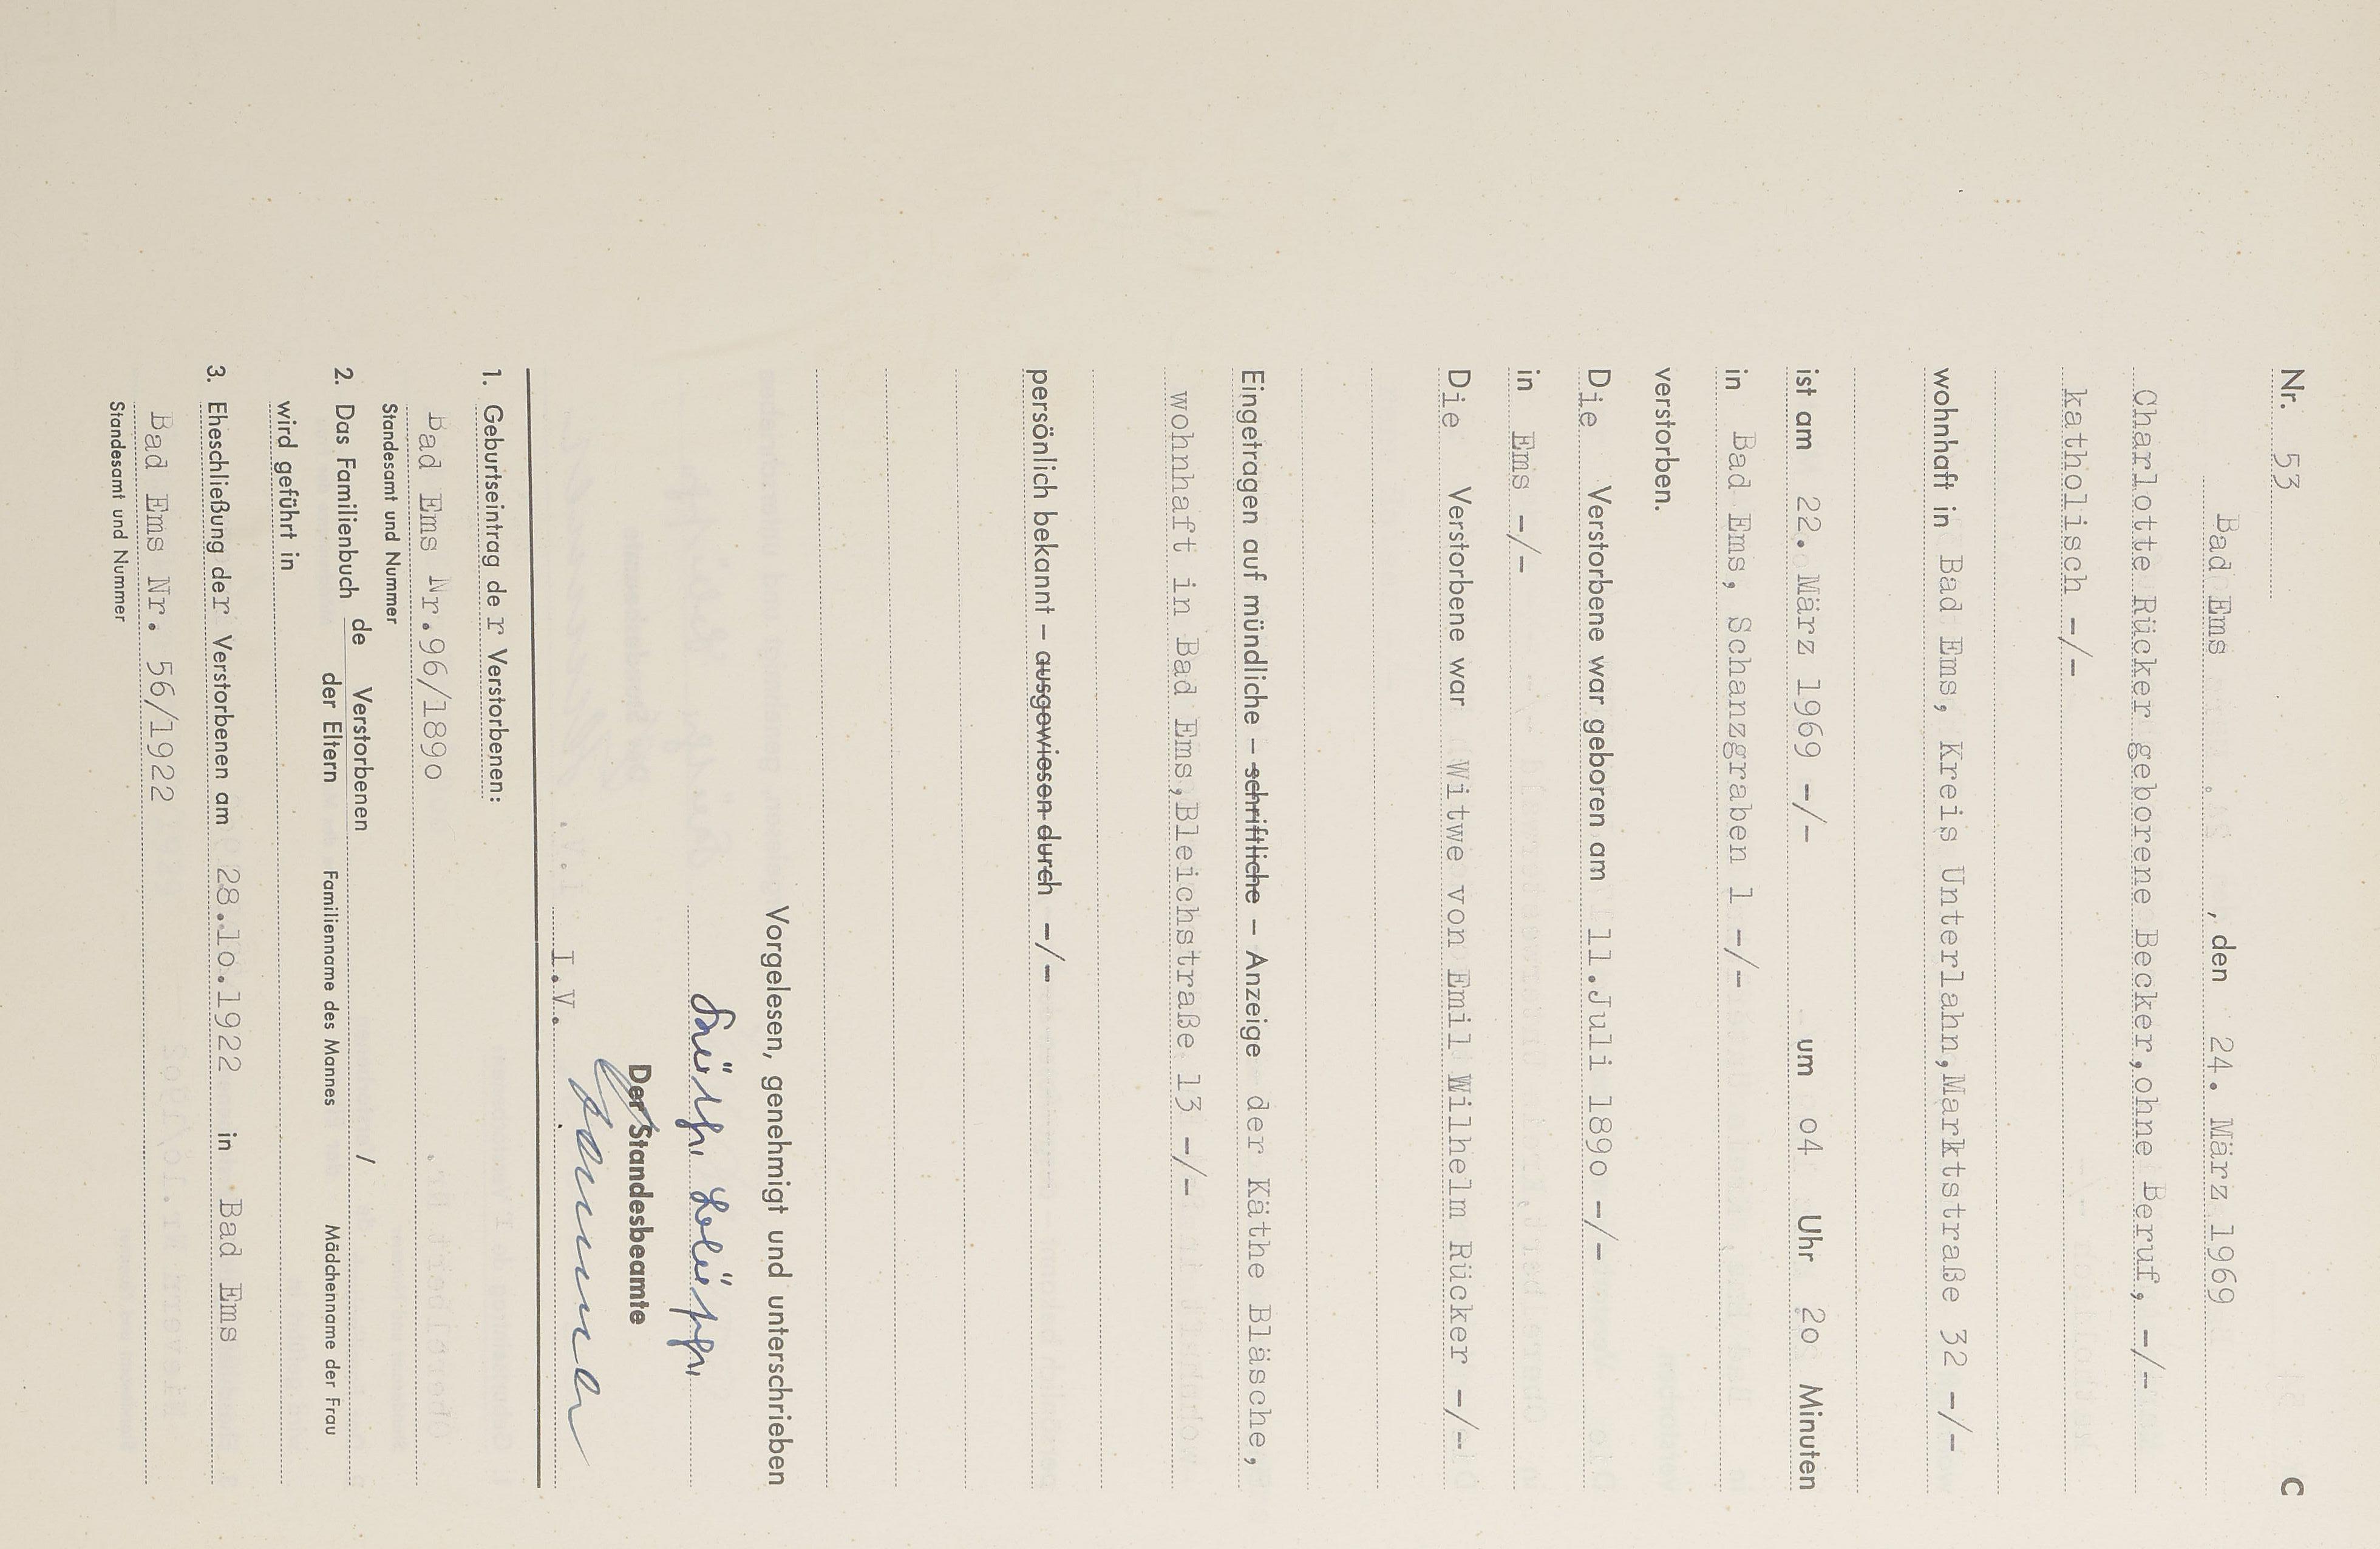 Nr. 53 C
Bad Ems, den 24. März 1969
Charlotte Rücker geborene Becker,ohne Beruf, -/-
katholisch -/-
wohnhaft in Bad Ems, Kreis Unterlahn,Marktstraße 32 -/-
ist am 22. März 1969 -/- um o4 Uhr 2o Minuten
in Bad Ems, Schanzgraben 1 -/-
verstorben.
Die Verstorbene war geboren am 11.Juli 189o -/-
in Ems -/-
Die Verstorbene war Witwe von Emil Wilhelm Rücker -/-
Eingetragen auf mündliche – schriftliche – Anzeige der Käthe Bläsche,
wohnhaft in Bad Ems,Bleichstraße 13 -/-
persönlich bekannt – ausgewiesen durch -/-
Vorgelesen, genehmigt und unterschrieben
Käthe Bläsche
Der Standesbeamte
I.V.
1. Geburtseintrag der Verstorbenen:
Bad Ems Nr.96/189o
Standesamt und Nummer
2. Das Familienbuch de Verstorbenen /
der Eltern Familienname des Mannes Mädchenname der Frau
wird geführt in
3. Eheschließung der Verstorbenen am 28.1o.1922 in Bad Ems
Bad Ems Nr. 56/1922
Standesamt und Nummer